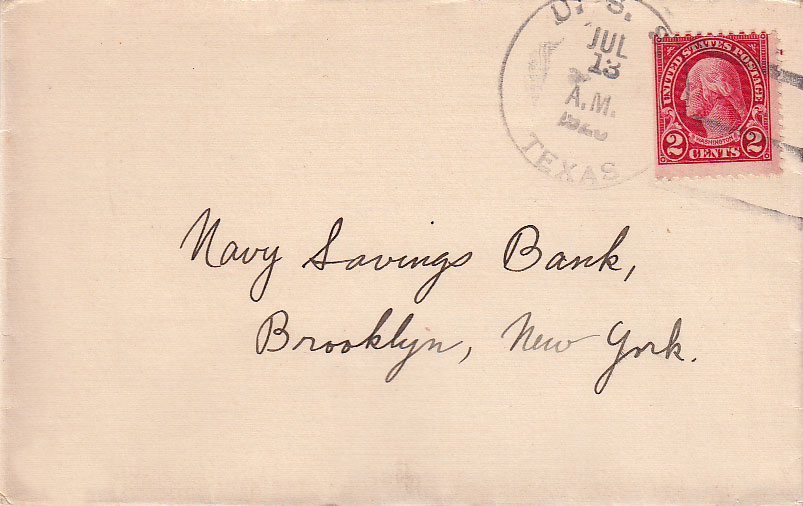 U. S. S.
JUL
13
A.M.
TEXAS
UNITED STATES POSTAGE
WASHINGTON
2 CENTS 2
Navy Savings Bank,
Brooklyn, New York.